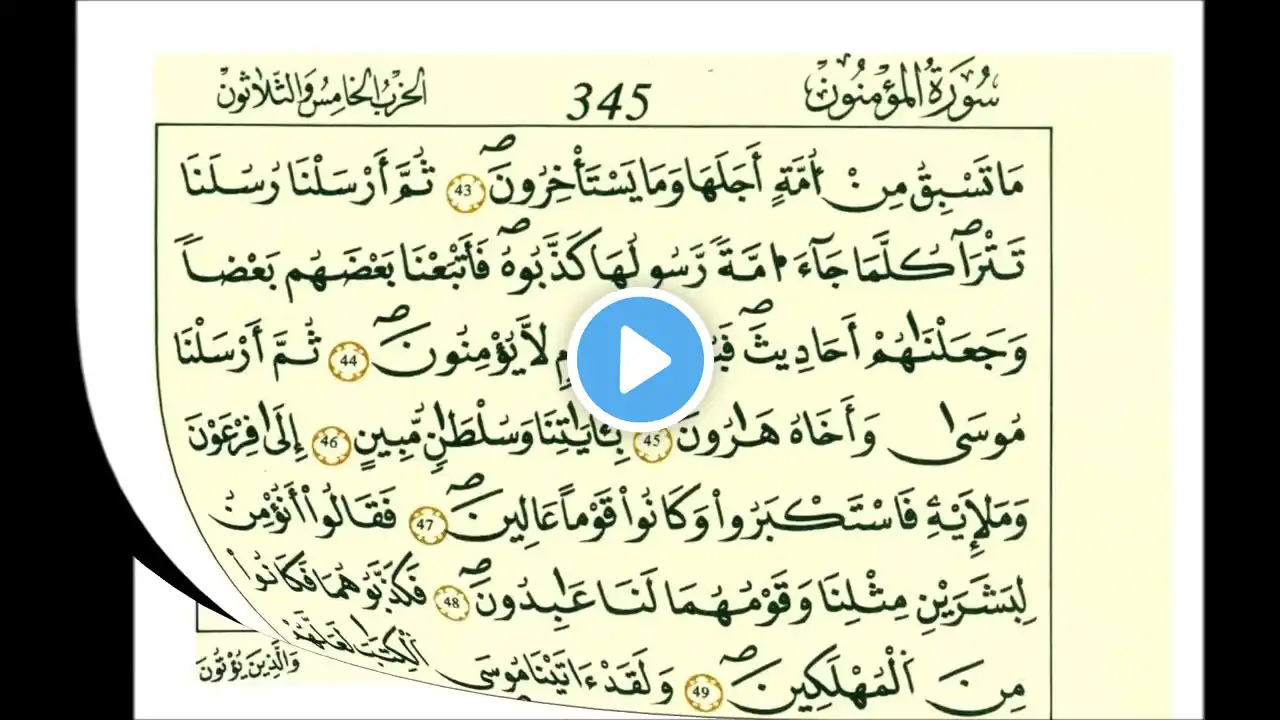 سُورَةُ المُؤمِنُونَ 345 الحِزْبُ الخَامِسُ وَالثَّلَاثُونَ
مَا تَسْبِقُ مِنُ ا۟مَّةٍ أَجَلَهَا وَمَا يَسْتَأْخِرُونَۖ 43 ثُمَّ أَرْسَلْنَا رُسُلَنَا
تَتْرَاۖ كُلَّمَا جَآءَ ا۟مَّةَ رَّسُولُهَا كَذَّبُوهُۖ فَأَتْبَعْنَا بَعْضَهُم بَعْضاً
وَجَعَلْنَٰهُمْ أَحَادِيثَۖ لَّا يُؤْمِنُونَۖ 44 ثُمَّ أَرْسَلْنَا
مُوسَىٰ وَأَخَاهُ هَٰرُونَ 45 بِـَٔايَٰتِنَا وَسُلْطَٰنٍ مُّبِينٍ 46 إِلَىٰ فِرْعَوْنَ
وَمَلَإِيْهِۦ فَاسْتَكْبَرُواْ وَكَانُواْ قَوْماً عَالِينَۖ 47 فَقَالُواْ أَنُؤْمِنُ
لِبَشَرَيْنِ مِثْلِنَا وَقَوْمُهُمَا لَنَا عَٰبِدُونَۖ 48 فَكَذَّبُوهُمَا فَكَانُواْ
مِنَ اَ۬لْمُهْلَكِينَۖ 49 وَلَقَدْ ءَاتَيْنَا مُوسَى اَ۬لْكِتَٰبَ لَعَلَّهُمْ
وَالَّذِينَ يُؤْتُونَ